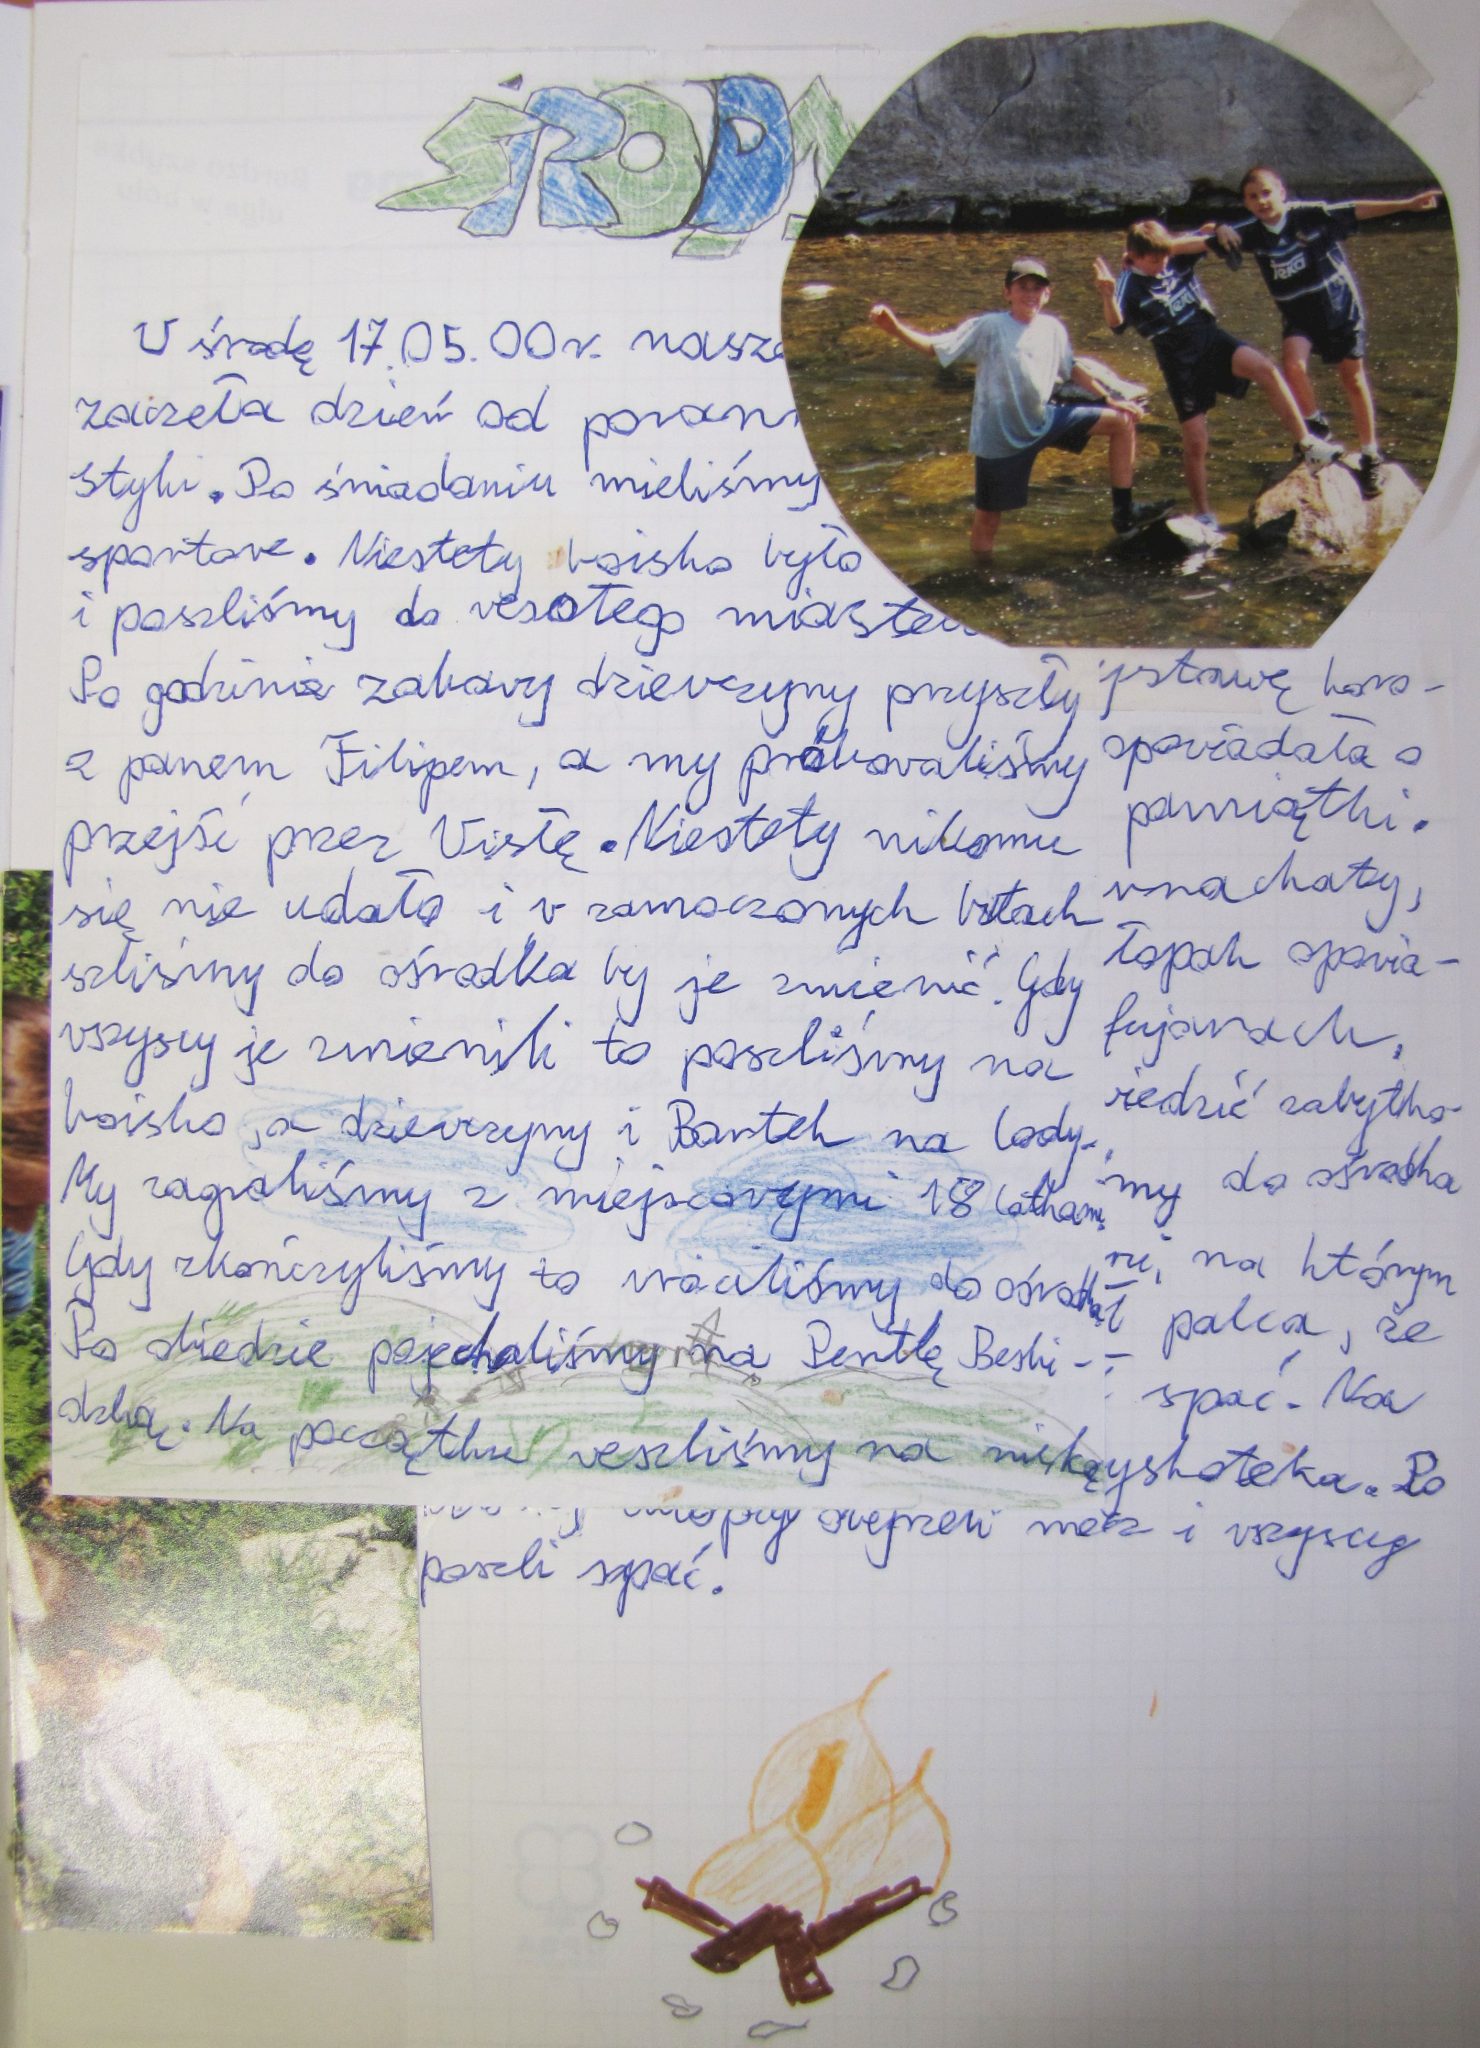 ŚRODA
W środę 17.05.00r. nasza
zaczęła dzień od porann
styki. Po śniadaniu mieliśmy
sportowe. Niestety boisko było
i poszliśmy do wesołego miastecz
Po godzinie zabawy dziewczyny przyszły
z panem Filipem, a my próbowaliśmy
przejść przez Wisłę. Niestety nikomu
się nie udało i w zamoczonych butach
szliśmy do ośrodka by je zmienić. Gdy
wszyscy je zmienili to poszliśmy na
boisko, a dziewczyny i Bartek na lody.
My zagraliśmy z miejscowymi 18 latkami
Gdy zkończyliśmy to wróciliśmy do ośrodka
Po obiedzie pojechaliśmy na Perłę Beski-
dzką. Na początku weszliśmy na
ystawę koro-
opowiadała o
pamiątki.
w nachaty,
łapak opowia-
fujarach,
iedzić zabytko-
my do ośrodka
na którym
palca, że
spać. Na
yskoteka. Po
mecz i wszyscy
poszli spać.
TEKA